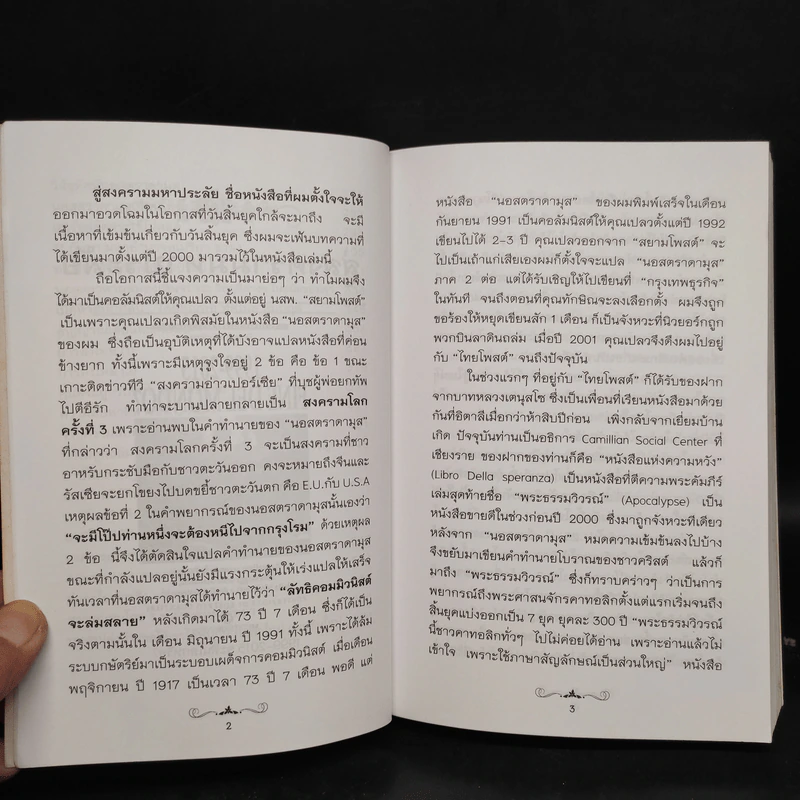 สู่สงครามมหาประลัย ชื่อหนังสือที่ผมตั้งใจจะให้
ออกมาอวดโฉมในโอกาสที่วันสิ้นยุคใกล้จะมาถึง จะมี
เนื้อหาที่เข้มข้นเกี่ยวกับวันสิ้นยุค ซึ่งผมจะเฟ้นบทความที่
ได้เขียนมาตั้งแต่ปี 2000 มารวมไว้ในหนังสือเล่มนี้
ถือโอกาสนี้ชี้แจงความเป็นมาย่อๆ ว่า ทำไมผมจึง
ได้มาเป็นคอลัมนิสต์ให้คุณเปลว ตั้งแต่อยู่ นสพ. “สยามโพสต์”
เป็นเพราะคุณเปลวเกิดพิสมัยในหนังสือ “นอสตราดามุส”
ของผม ซึ่งถือเป็นอุบัติเหตุที่ได้บังอาจแปลหนังสือที่ค่อน
ข้างยาก ทั้งนี้เพราะมีเหตุจูงใจอยู่ 2 ข้อ คือ ข้อ 1 ขณะ
เกาะติดข่าวทีวี “สงครามอ่าวเปอร์เซีย” ที่บุชผู้พ่อยกทัพ
ไปตีอีรัก ทำท่าจะบานปลายกลายเป็น สงครามโลก
ครั้งที่ 3 เพราะอ่านพบในคำทำนายของ “นอสตราดามุส”
ที่กล่าวว่า สงครามโลกครั้งที่ 3 จะเป็นสงครามที่ชาว
อาหรับกระชับมือกับชาวตะวันออก คงจะหมายถึงจีนและ
รัสเซียจะยกโขยงไปบดขยี้ชาวตะวันตก คือ E.U.กับ U.S.A
เหตุผลข้อที่ 2 ในคำพยากรณ์ของนอสตราดามุสนั้นเองว่า
“จะมีโป๊ปท่านหนึ่งจะต้องหนีไปจากกรุงโรม” ด้วยเหตุผล
2 ข้อ นี้จึงได้ตัดสินใจแปลคำทำนายของนอสตราดามุส
ขณะที่กำลังแปลอยู่นั้นยังมีแรงกระตุ้นให้เร่งแปลให้เสร็จ
ทันเวลาที่นอสตราดามุสได้ทำนายไว้ว่า “ลัทธิคอมมิวนิสต์
จะล่มสลาย” หลังเกิดมาได้ 73 ปี 7 เดือน ซึ่งก็ได้เป็น
จริงตามนั้นใน เดือน มิถุนายน ปี 1991 ทั้งนี้ เพราะได้ล้ม
ระบบกษัตริย์มาเป็นระบอบเผด็จการคอมมิวนิสต์ เมื่อเดือน
พฤศจิกายน ปี 1917 เป็นเวลา 73 ปี 7 เดือน พอดี แต่
2
หนังสือ “นอสตราดามุส” ของผมพิมพ์เสร็จในเดือน
กันยายน 1991 เป็นคอลัมนิสต์ให้คุณเปลวตั้งแต่ปี 1992
เขียนไปได้ 2-3 ปี คุณเปลวออกจาก “สยามโพสต์” จะ
ไปเป็นเถ้าแก่เสียเองผมก็ตั้งใจจะแปล “นอสตราดามุส”
ภาค 2 ต่อ แต่ได้รับเชิญให้ไปเขียนที่ “กรุงเทพธุรกิจ”
ในทันที จนถึงตอนที่คุณทักษิณจะลงเลือกตั้ง ผมจึงถูก
ขอร้องให้หยุดเขียนสัก 1 เดือน ก็เป็นจังหวะที่นิวยอร์กถูก
พวกบินลาดินถล่ม เมื่อปี 2001 คุณเปลวจึงดึงผมไปอยู่
กับ “ไทยโพสต์” จนถึงปัจจุบัน
ในช่วงแรกๆ ที่อยู่กับ “ไทยโพสต์” ก็ได้รับของฝาก
จากบาทหลวงเตนุสโซ ซึ่งเป็นเพื่อนที่เรียนหนังสือมาด้วย
กันที่อิตาลีเมื่อกว่าห้าสิบปีก่อน เพิ่งกลับจากเยี่ยมบ้าน
เกิด ปัจจุบันท่านเป็นอธิการ Camillian Social Center ที่
เชียงราย ของฝากของท่านก็คือ “หนังสือแห่งความหวัง”
(Libro Della speranza) เป็นหนังสือที่ตีความพระคัมภีร์
เล่มสุดท้ายชื่อ “พระธรรมวิวรณ์” (Apocalypse) เป็น
หนังสือขายดีในช่วงก่อนปี 2000 ซึ่งมาถูกจังหวะทีเดียว
หลังจาก “นอสตราดามุส” หมดความเข้มข้นลงไปบ้าง
จึงขยับมาเขียนคำทำนายโบราณของชาวคริสต์ แล้วก็
มาถึง “พระธรรมวิวรณ์” ซึ่งก็ทราบคร่าวๆ ว่าเป็นการ
พยากรณ์ถึงพระศาสนจักรคาทอลิกตั้งแต่แรกเริ่มจนถึง
สิ้นยุคแบ่งออกเป็น 7 ยุค ยุคละ 300 ปี “พระธรรมวิวรณ์
นี้ชาวคาทอลิกทั่วๆ ไปไม่ค่อยได้อ่าน เพราะอ่านแล้วไม่
เข้าใจ เพราะใช้ภาษาสัญลักษณ์เป็นส่วนใหญ่” หนังสือ
3